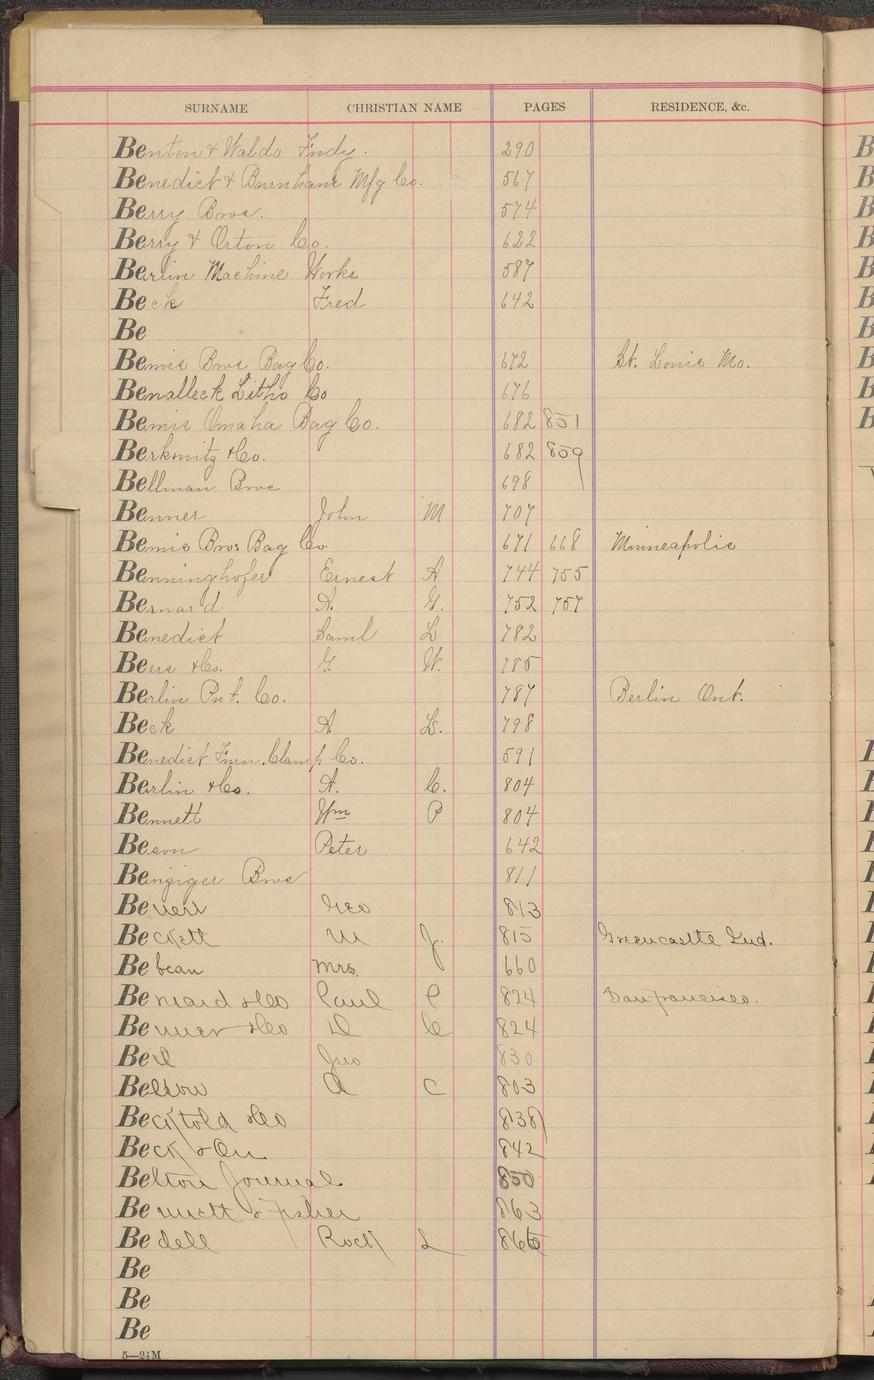 SURNAME CHRISTIAN NAME PAGES RESIDENCE, &c.
Benton & Waldo Indy. 290
Benedict & Burnham Mfg Co. 567
Berry Bros. 574
Berry & Orton Co. 622
Berlin Machine Works 587
Beck Fred 642
Be
Bemis Bros Bag Co. 672 St. Louis Mo.
Benalleck Litho Co 676
Bemis Omaha Bag Co. 682 851
Berkowitz & Co. 682 859
Bellman Bros 698
Benner John M 707
Bemis Bros Bag Co. 671 668 Minneapolis
Benninghofer Ernest A 744 755
Bernard A. G. 752 757
Benedict Saml L 782
Beers & Co. G. W. 785
Berlin Pnt. Co. 787 Berlin Ont.
Beck A L. 798
Benedict Furn. Clamp Co. 591
Berlin & Co. A. C. 804
Bennett Wm P 804
Beson Peter 642
Benziger Bros 811
Geo 813
Beckett M J. 815 Greencastle Ind.
Bebean Mrs. 660
Bernard & Co Paul C 824 San francisco.
Benner & Co D C 824
Jno 830
A C 803
Becktold & Co 838
Beck & 842
Belton Journal 850
Bennett & Fisher 863
Bedell Rock L 866
Be
Be
Be
5—2½M